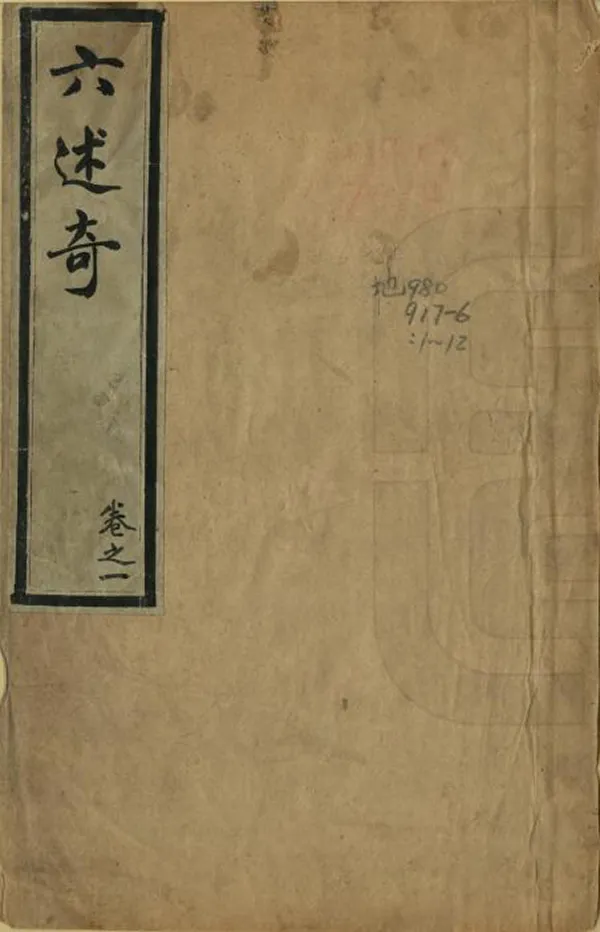 六述奇
卷之一
地980
917-6
:1~12